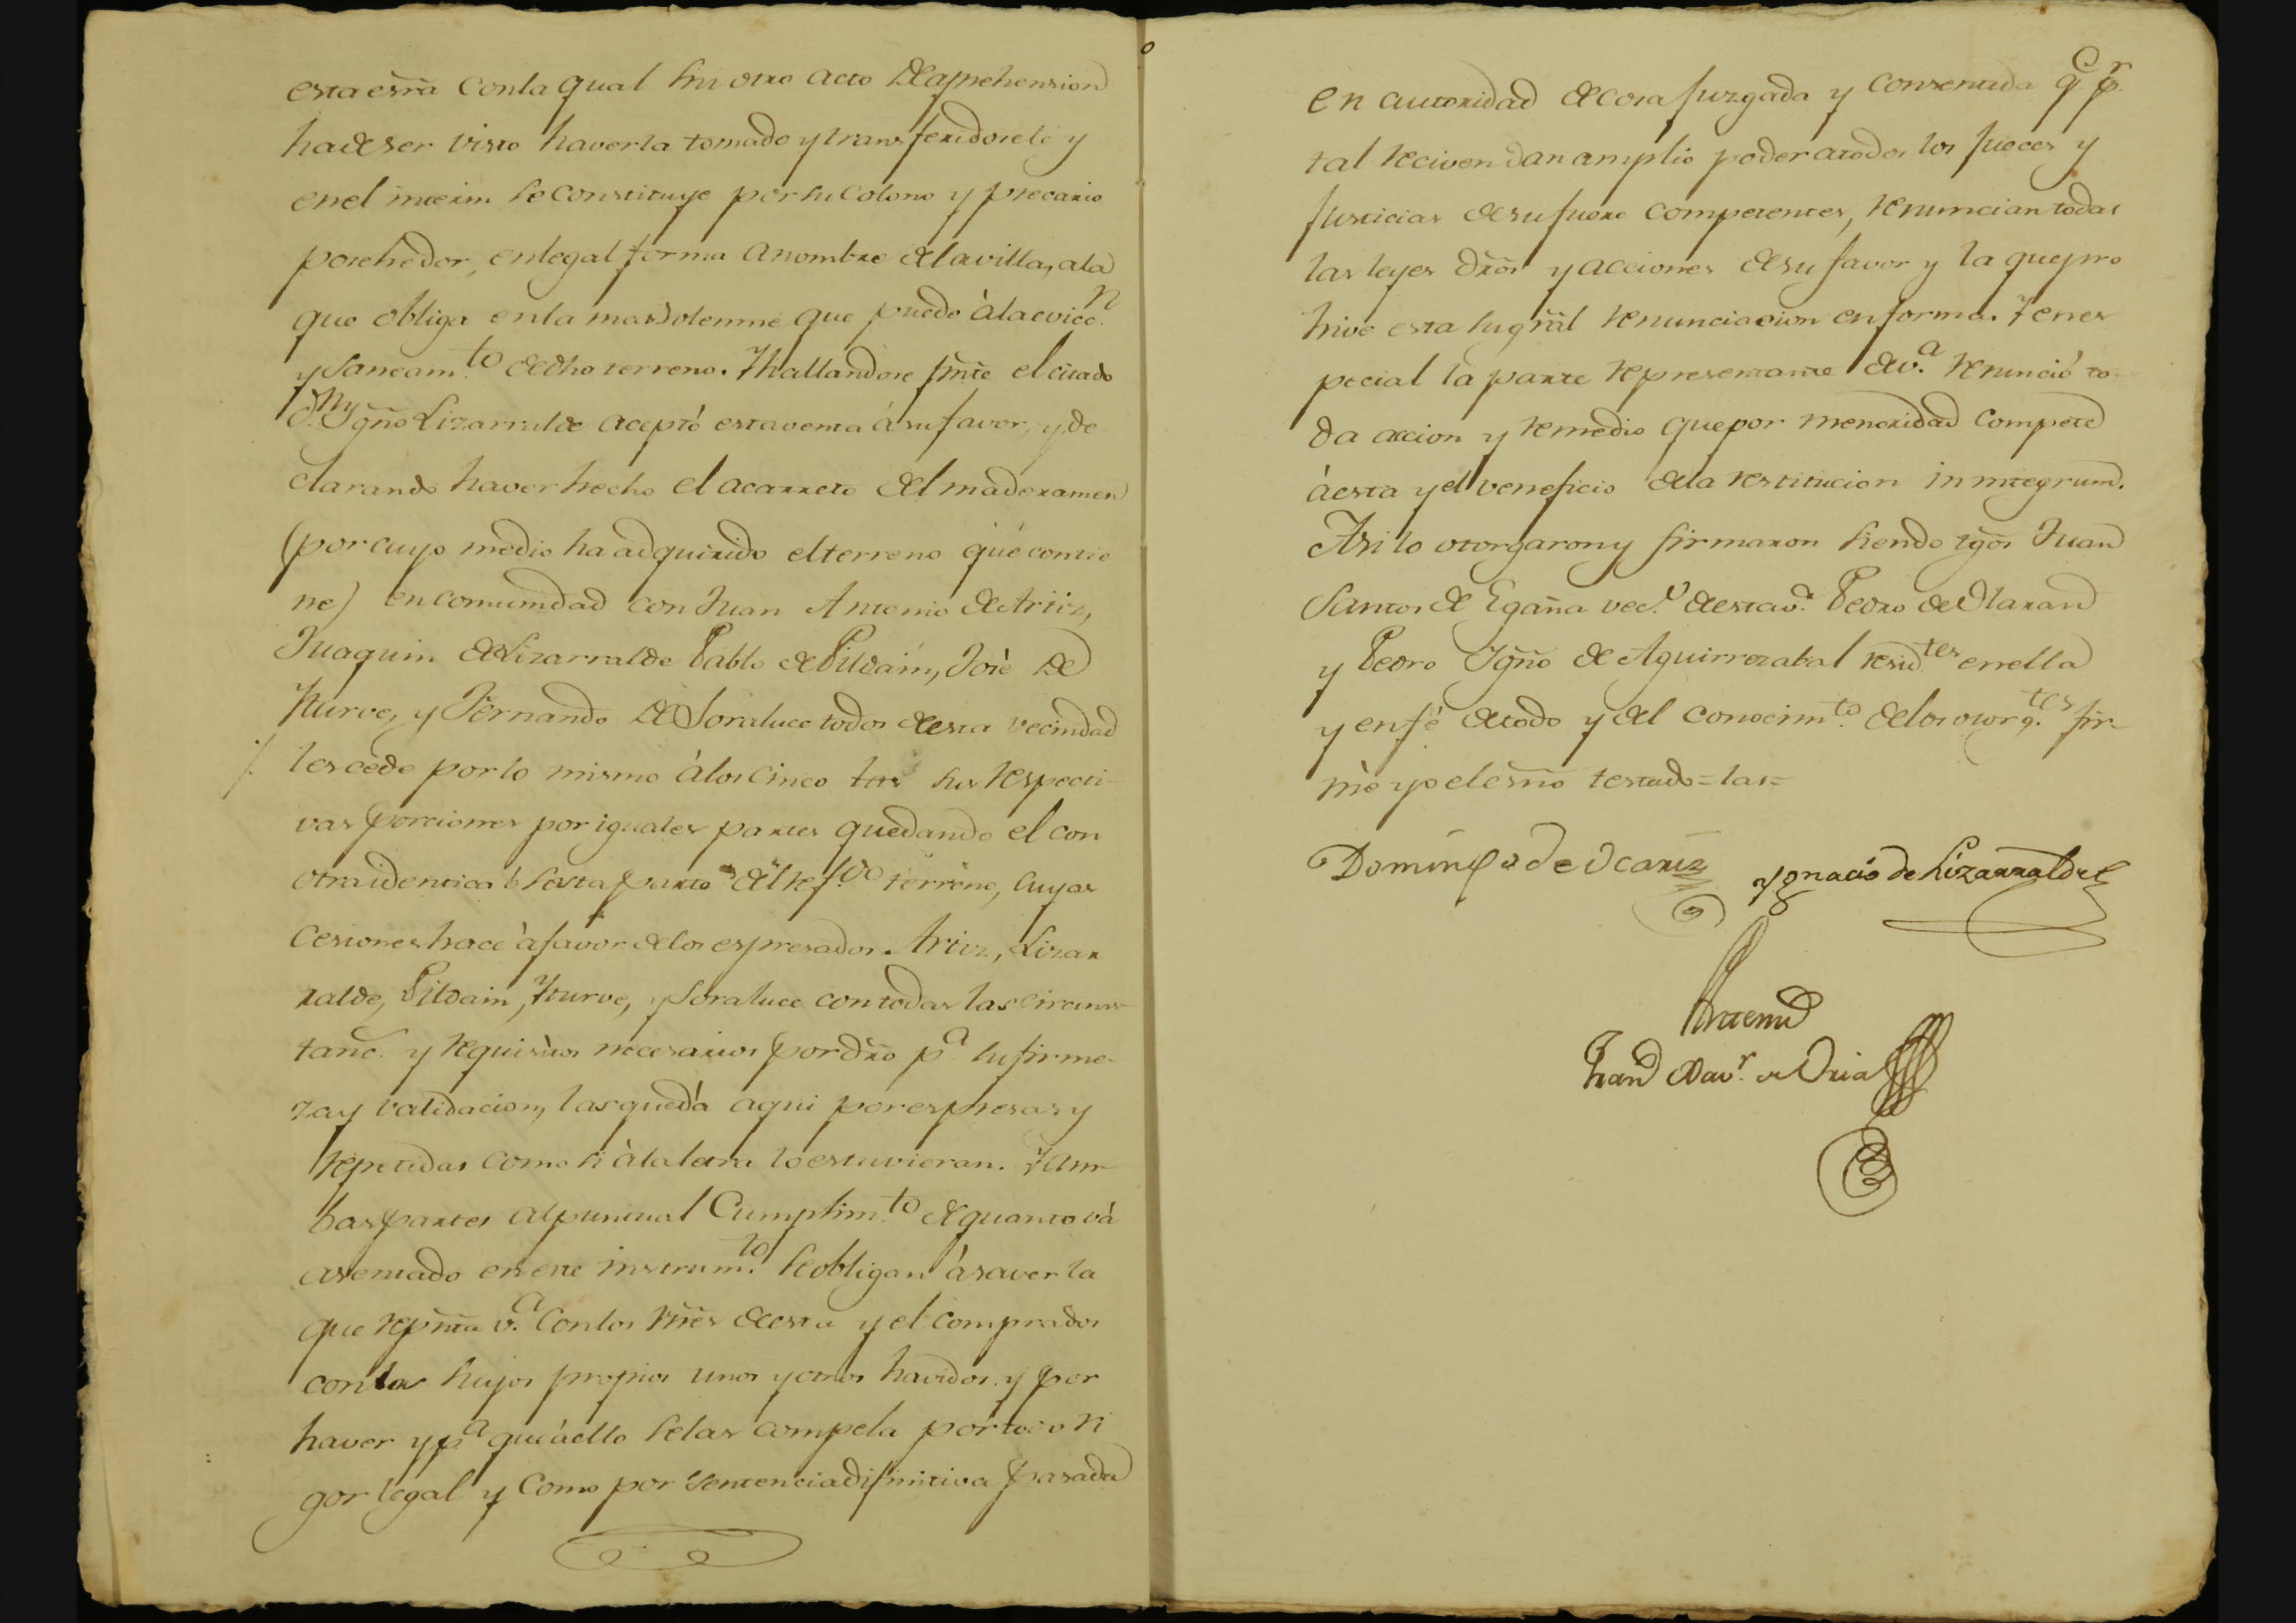 esta esrã con la qual sin otro acto de aprehension
ha de ser visto haverla tomado y transferidosele y
en el interin se constituye por su colono y precario
posehedor, en legal forma a nombre de la villa, a la
que obliga en la mas solemne que puede à la evicc.n
y saneam.to de dho terreno. Y hallandose prnte el citado
d.n Ygño Lizarralde aceptó esta venta á su favor, y de
clarando haver hecho el acarreto del maderamen
(por cuyo medio ha adquirido el terreno qué contie
ne) en comunidad con Juan Antonio de Ariiz,
Juaquin de Lizarralde Pablo de Pildain, José de
Yturve, y Fernando de Soraluce todos de esta vecindad
les cede por lo mismo à los cinco las sus respecti-
vas porciones por iguales partes quedando el con
otra identica ó sexta parte del ref.do terreno, cuyas
cesiones hace à favor de los espresados Ariiz, Lizar
ralde, Pildain, Yturve, y Soraluce con todas las circuns-
tanc.s y requisitos necesarios por dro p.a su firme-
za y validacion, las que dá aqui por espresas y
repetidas como si à la letra lo estuvieran. Y am-
bas partes al puntual cumplim.to de quanto vá
asentado en este instrum.to se obligan á saver la
que reprnta v.a con los vnes de esta y el comprador
con los suyos propios unos y otros havidos y por
haver y p.a que á ello se las compela por todo ri
gor legal y como por sentencia difinitiva pasada
en autoridad de cosa juzgada y consentida q.e p.r
tal reciven dan amplio poder a todos los jueces y
justicias de su fuero competentes, renuncian todas
las leyes dros y acciones de su favor y la que pro
hive esta su gral renunciacion en forma. Y en es
pecial la parte representante de v.a renunció to-
da accion y remedio que por menoridad compete
á esta y el veneficio de la restitucion in integrum.
Asi lo otorgaron y firmaron siendo tgos Juan
Santos de Egaña vec.o de esta v.a Pedro de Olaran
y Pedro Ygño de Aguirrezabal resid.tes en ella
y en fé de todo y del conocim.to de los otorg.tes fir-
mè yo el esno testado = las =
Domingo de Ocariz Ygnacio de Lizarralde
Ante mi
Fran.co Xav.r de Oria